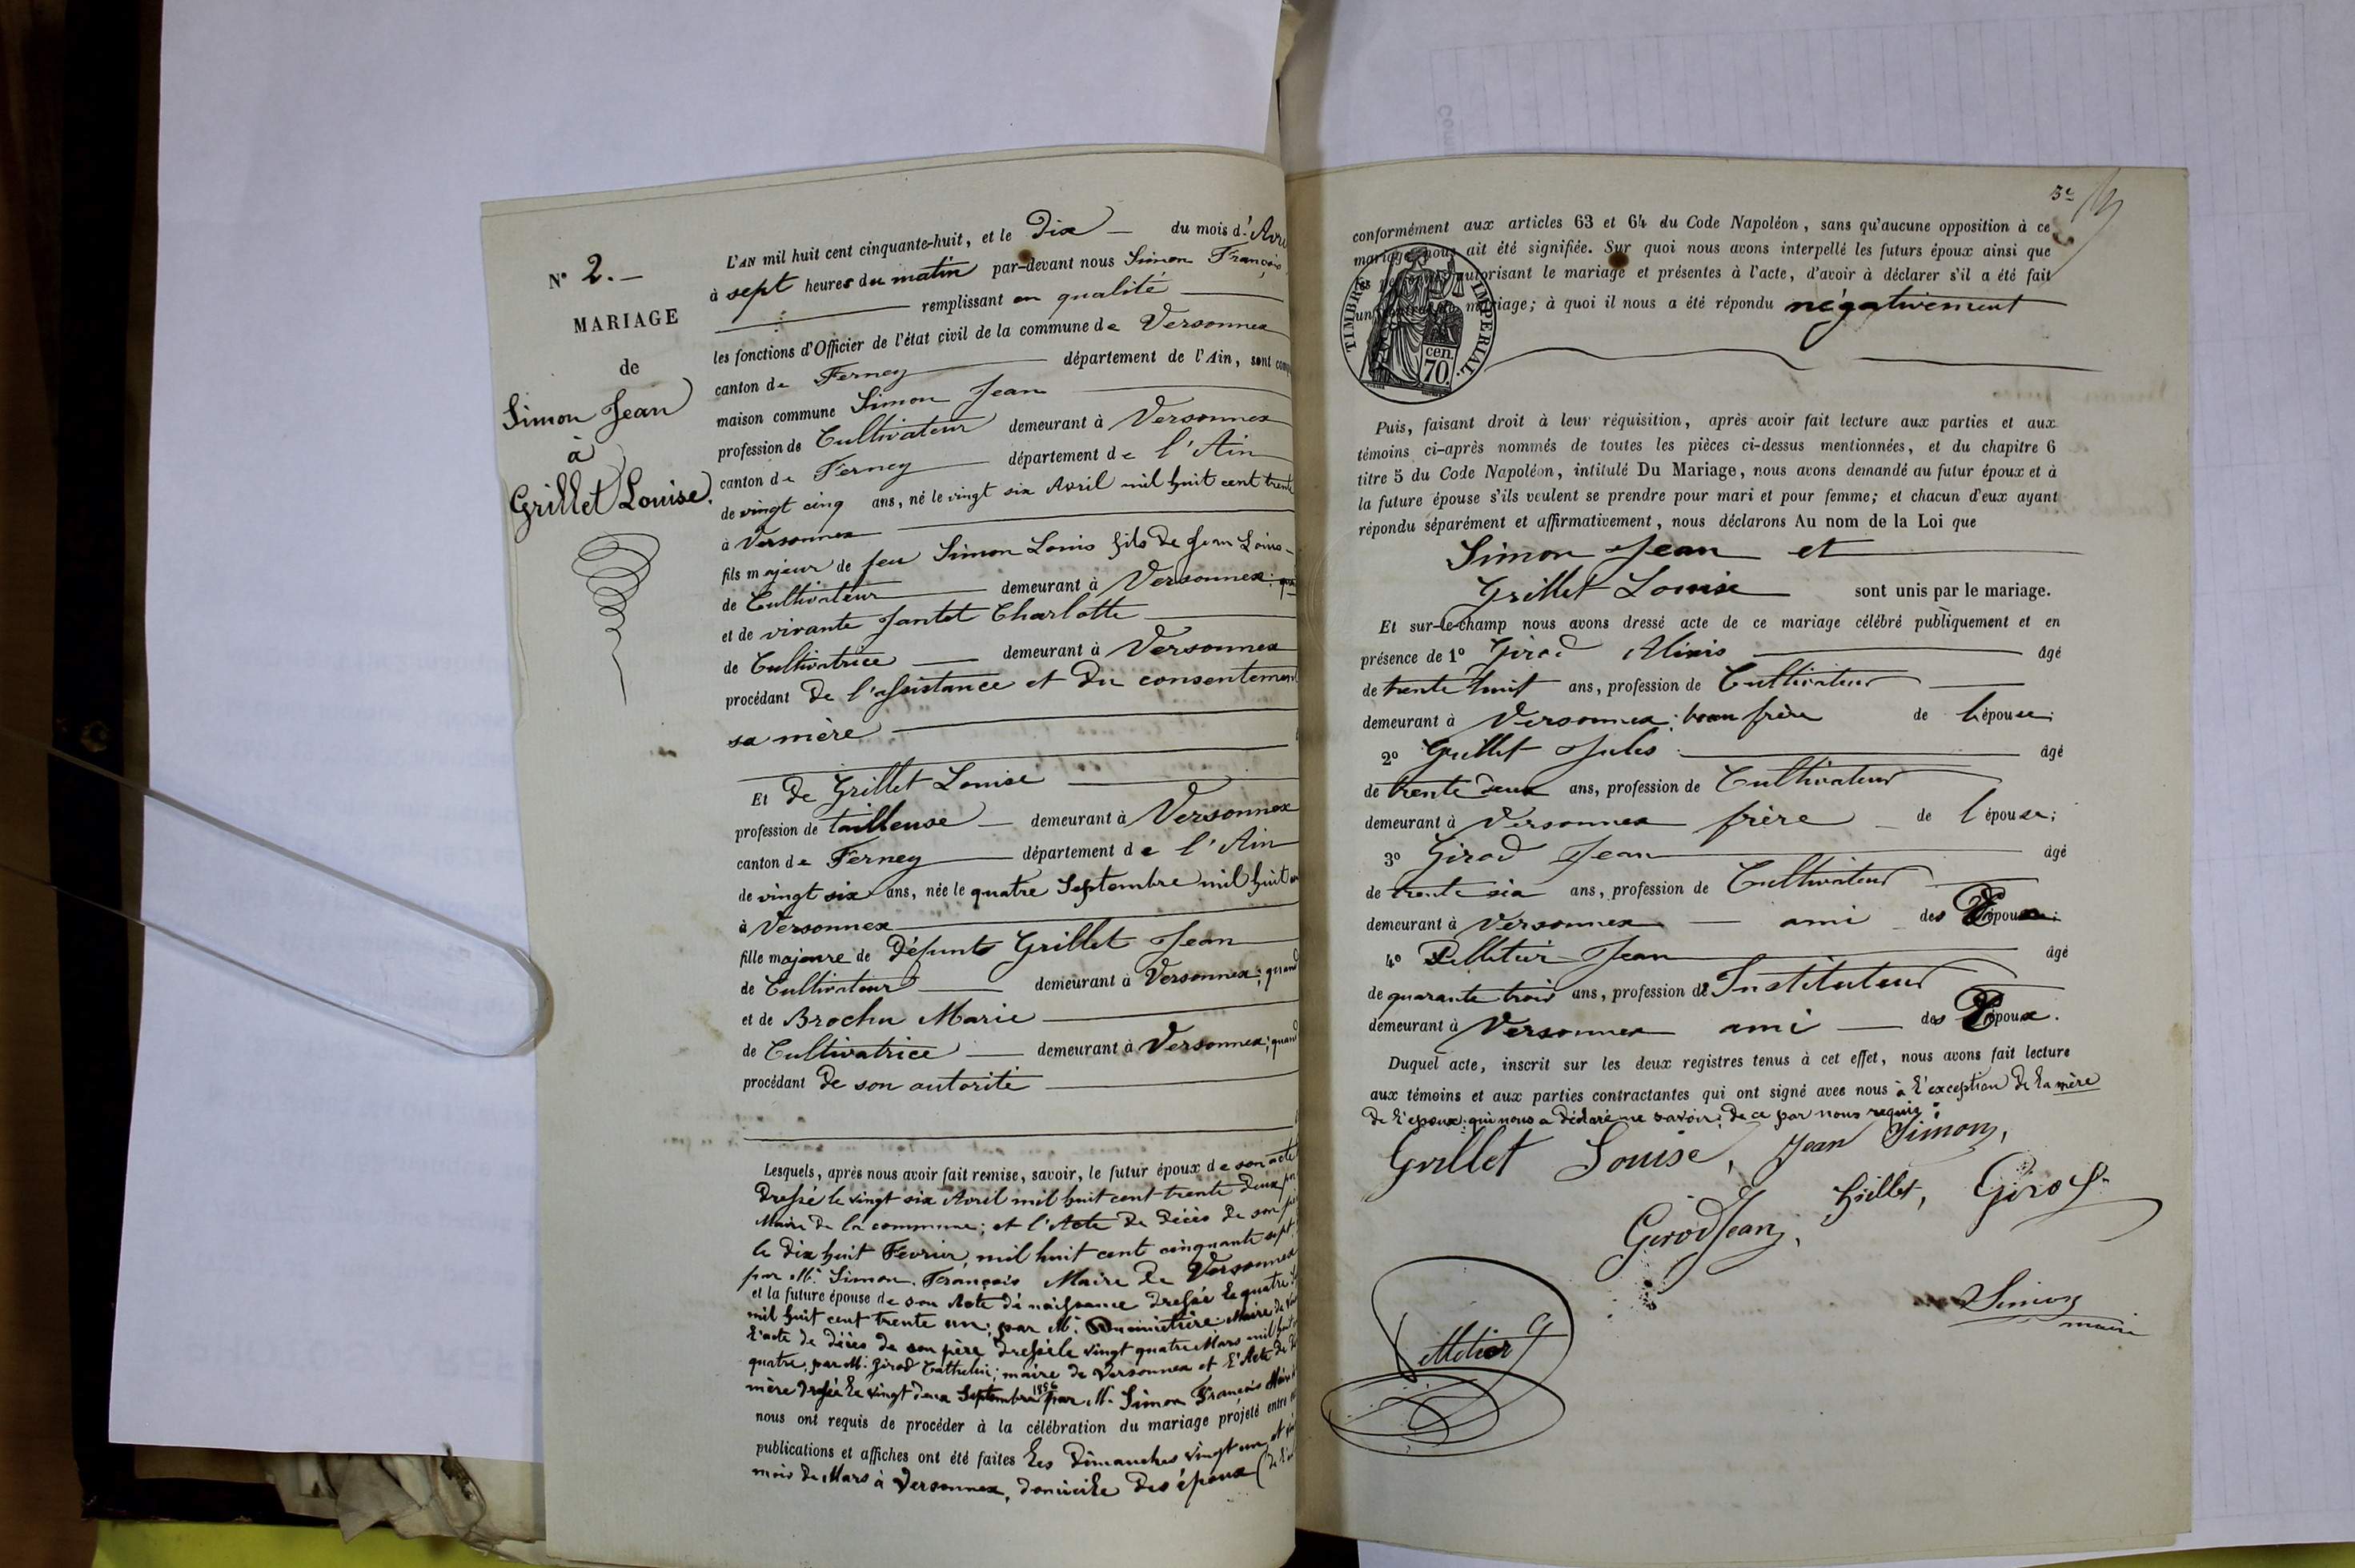 N° 2. —
MARIAGE
de
Simon Jean
à
Grillet Louise.
L'AN mil huit cent cinquante-huit, et le Dix — du mois d'Avri
à sept heures du matin par-devant nous Simon François
remplissant en qualité
les fonctions d'Officier de l'état civil de la commune de Versonnex
canton de Ferney département de l'Ain, sont com
maison commune Simon Jean
profession de Cultivateur demeurant à Versonnex
canton de Ferney département de l'Ain
de vingt cinq ans, né le vingt six Avril mil huit cent trente
à Versonnex
fils majeur de feu Simon Louis fils de Jean Louis
de Cultivateur demeurant à Versonnex:
et de vivante Jantet Charlotte
de Cultivatrice demeurant à Versonnex
procédant de l'assistance et du consentement
sa mère
Et de Grillet Louise
profession de tailleuse demeurant à Versonnex
canton de Ferney département de l'Ain
de vingt six ans, née le quatre Septembre mil huit
à Versonnex
fille majeure de Défunts Grillet Jean
de Cultivateur demeurant à Versonnex; quand
et de Brochu Marie
de Cultivatrice demeurant à Versonnex; quand
procédant de son autorité
Lesquels, après nous avoir fait remise, savoir, le futur époux de son acte
Dressé le vingt six Avril mil huit cent trente deux
Maire de la commune; et l'Acte de décès de son
le dix huit Février, mil huit cent cinquante sept
par Mr. Simon François Maire de Versonnex
et la future épouse de son Acte de naissance dressée le quatre
mil huit cent trente un; par Mr. Maire de
l'acte de décès de son père dressé le vingt quatre Mars mil huit
quatre, par Mr. Girod maire de Versonnex et l'Acte de
mère dressé le vingt deux Septembre 1856 par Mr. Simon François Maire
nous ont requis de procéder à la célébration du mariage projeté entre
publications et affiches ont été faites les Dimanches vingt un et
mois de Mars à Versonnex, domicile des époux
5e
conformément aux articles 63 et 64 du Code Napoléon, sans qu'aucune opposition à ce
mariage nous ait été signifiée. Sur quoi nous avons interpellé les futurs époux ainsi que
les autorisant le mariage et présentes à l'acte, d'avoir à déclarer s'il a été fait
un mariage; à quoi il nous a été répondu négativement
TIMBRE IMPERIAL
70 cen.
Puis, faisant droit à leur réquisition, après avoir fait lecture aux parties et aux
témoins ci-après nommés de toutes les pièces ci-dessus mentionnées, et du chapitre 6
titre 5 du Code Napoléon, intitulé Du Mariage, nous avons demandé au futur époux et à
la future épouse s'ils veulent se prendre pour mari et pour femme; et chacun d'eux ayant
répondu séparément et affirmativement, nous déclarons Au nom de la Loi que
Simon Jean et
Grillet Louise sont unis par le mariage.
Et sur-le-champ nous avons dressé acte de ce mariage célébré publiquement et en
présence de 1° Girod Alixis âgé
de trente huit ans, profession de Cultivateur
demeurant à Versonnex; beau frère de l'épouse;
2° Grillet Jules âgé
de trente deux ans, profession de Cultivateur
demeurant à Versonnex frère de l'épouse;
3° Girod Jean âgé
de trente six ans, profession de Cultivateur
demeurant à Versonnex — ami des Époux;
4° Pelletier Jean âgé
de quarante trois ans, profession de Instituteur
demeurant à Versonnex ami — des Époux.
Duquel acte, inscrit sur les deux registres tenus à cet effet, nous avons fait lecture
aux témoins et aux parties contractantes qui ont signé avec nous à l'exception de la mère
de l'époux; qui nous a déclaré ne savoir; de ce par nous requis;
Grillet Louise, Jean Simon,
Girod Jean, Grillet, Girod
Simon
maire
Pelletier